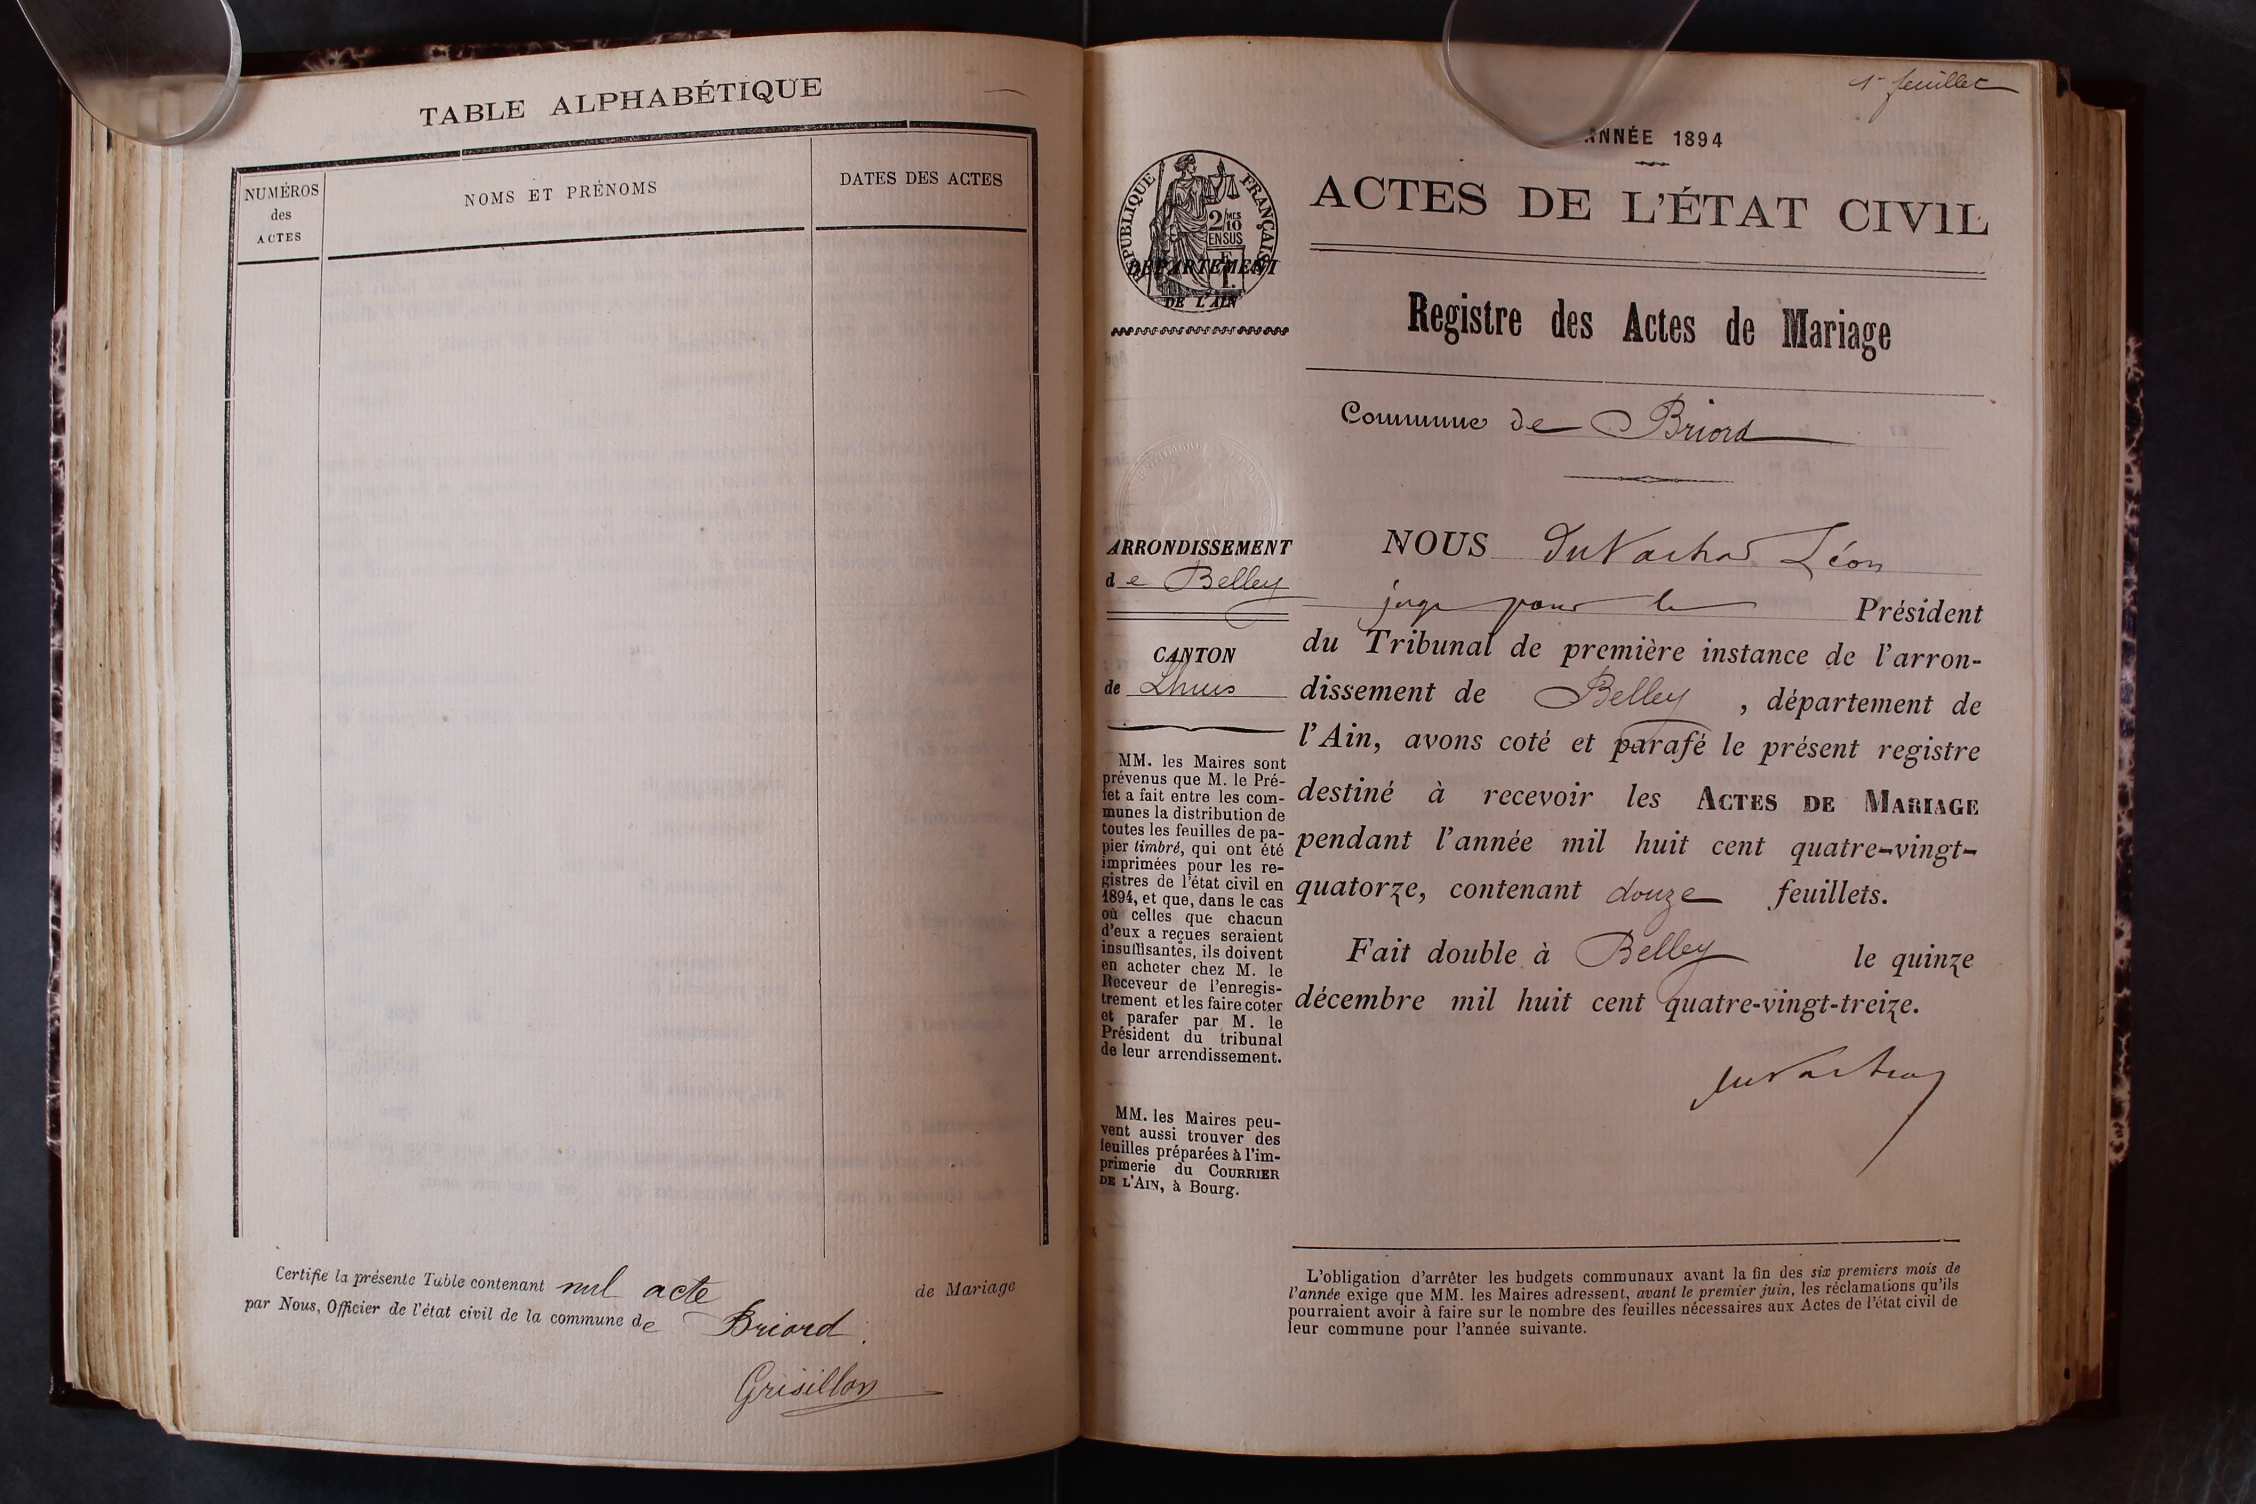 TABLE ALPHABÉTIQUE
NUMÉROS
des
ACTES
NOMS ET PRÉNOMS
DATES DES ACTES
Certifie la présente Table contenant nul acte de Mariage
par Nous, Officier de l'état civil de la commune de Briord.
Grisillon
1er feuillet
ANNÉE 1894
RÉPUBLIQUE FRANÇAISE
2/MES
10
EN SUS
DÉPARTEMENT
DE L'AIN
ARRONDISSEMENT
de Belley
CANTON
de Lhuis
MM. les Maires sont
prévenus que M. le Pré-
fet a fait entre les com-
munes la distribution de
toutes les feuilles de pa-
pier timbré, qui ont été
imprimées pour les re-
gistres de l'état civil en
1894, et que, dans le cas
où celles que chacun
d'eux a reçues seraient
insuffisantes, ils doivent
en acheter chez M. le
Receveur de l'enregis-
trement et les faire coter
et parafer par M. le
Président du tribunal
de leur arrondissement.
MM. les Maires peu-
vent aussi trouver des
feuilles préparées à l'im-
primerie du COURRIER
DE L'AIN, à Bourg.
ACTES DE L'ÉTAT CIVIL
Registre des Actes de Mariage
Commune de Briord
NOUS Léon
juge pour le Président
du Tribunal de première instance de l'arron-
dissement de Belley, département de
l'Ain, avons coté et parafé le présent registre
destiné à recevoir les ACTES DE MARIAGE
pendant l'année mil huit cent quatre-vingt-
quatorze, contenant douze feuillets.
Fait double à Belley le quinze
décembre mil huit cent quatre-vingt-treize.
L'obligation d'arrêter les budgets communaux avant la fin des six premiers mois de
l'année exige que MM. les Maires adressent, avant le premier juin, les réclamations qu'ils
pourraient avoir à faire sur le nombre des feuilles nécessaires aux Actes de l'état civil de
leur commune pour l'année suivante.